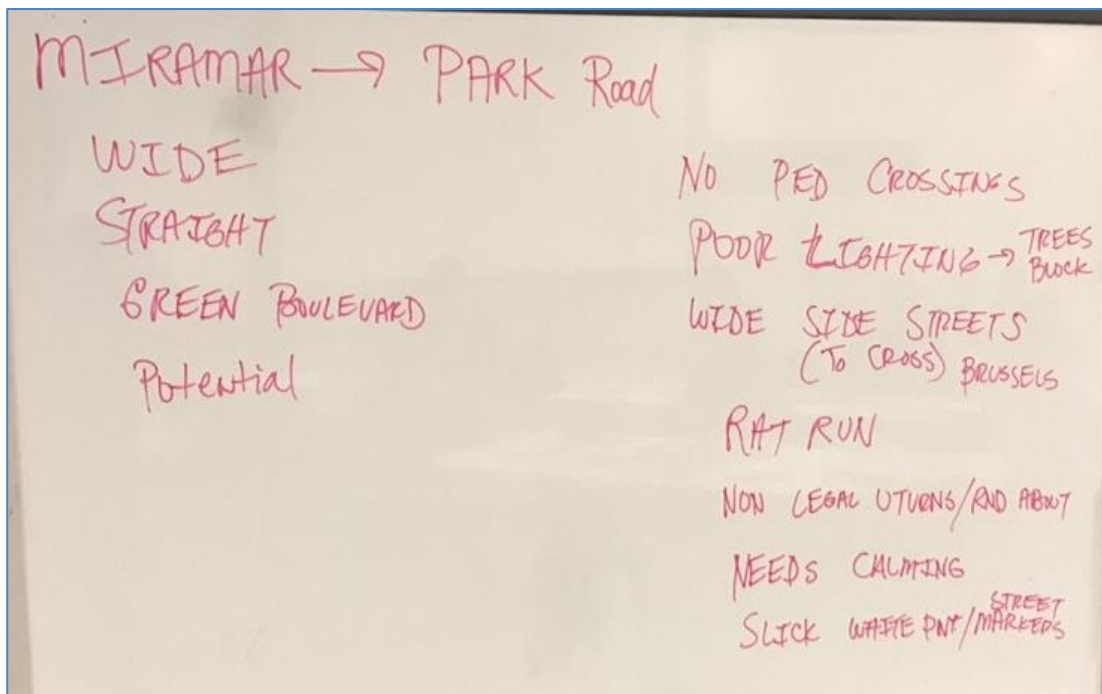 MIRAMAR → PARK Road
WIDE
STRAIGHT
GREEN BOULEVARD
Potential
NO PED CROSSINGS
POOR LIGHTING → TREES
BLOCK
WIDE SIDE STREETS
(TO CROSS) BRUSSELS
RAT RUN
NON LEGAL UTURNS/RND ABOUT
NEEDS CALMING
SLICK WHITE PNT/STREET
MARKERS